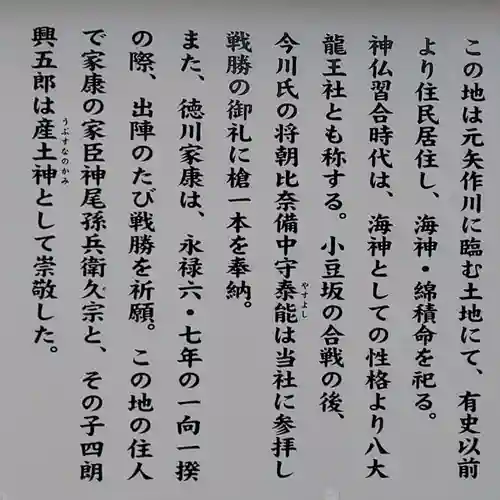 この地は元矢作川に臨む土地にて、有史以前
より住民居住し、海神・綿積命を祀る。
神仏習合時代は、海神としての性格より八大
龍王社とも称する。小豆坂の合戦の後、
今川氏の将朝比奈備中守泰能は当社に参拝し
やすよし
戦勝の御礼に槍一本を奉納。
また、徳川家康は、永禄六・七年の一向一揆
の際、出陣のたび戦勝を祈願。この地の住人
で家康の家臣神尾孫兵衛久宗と、その子四朗
興五郎は産土神として崇敬した。
うぶすなのかみ